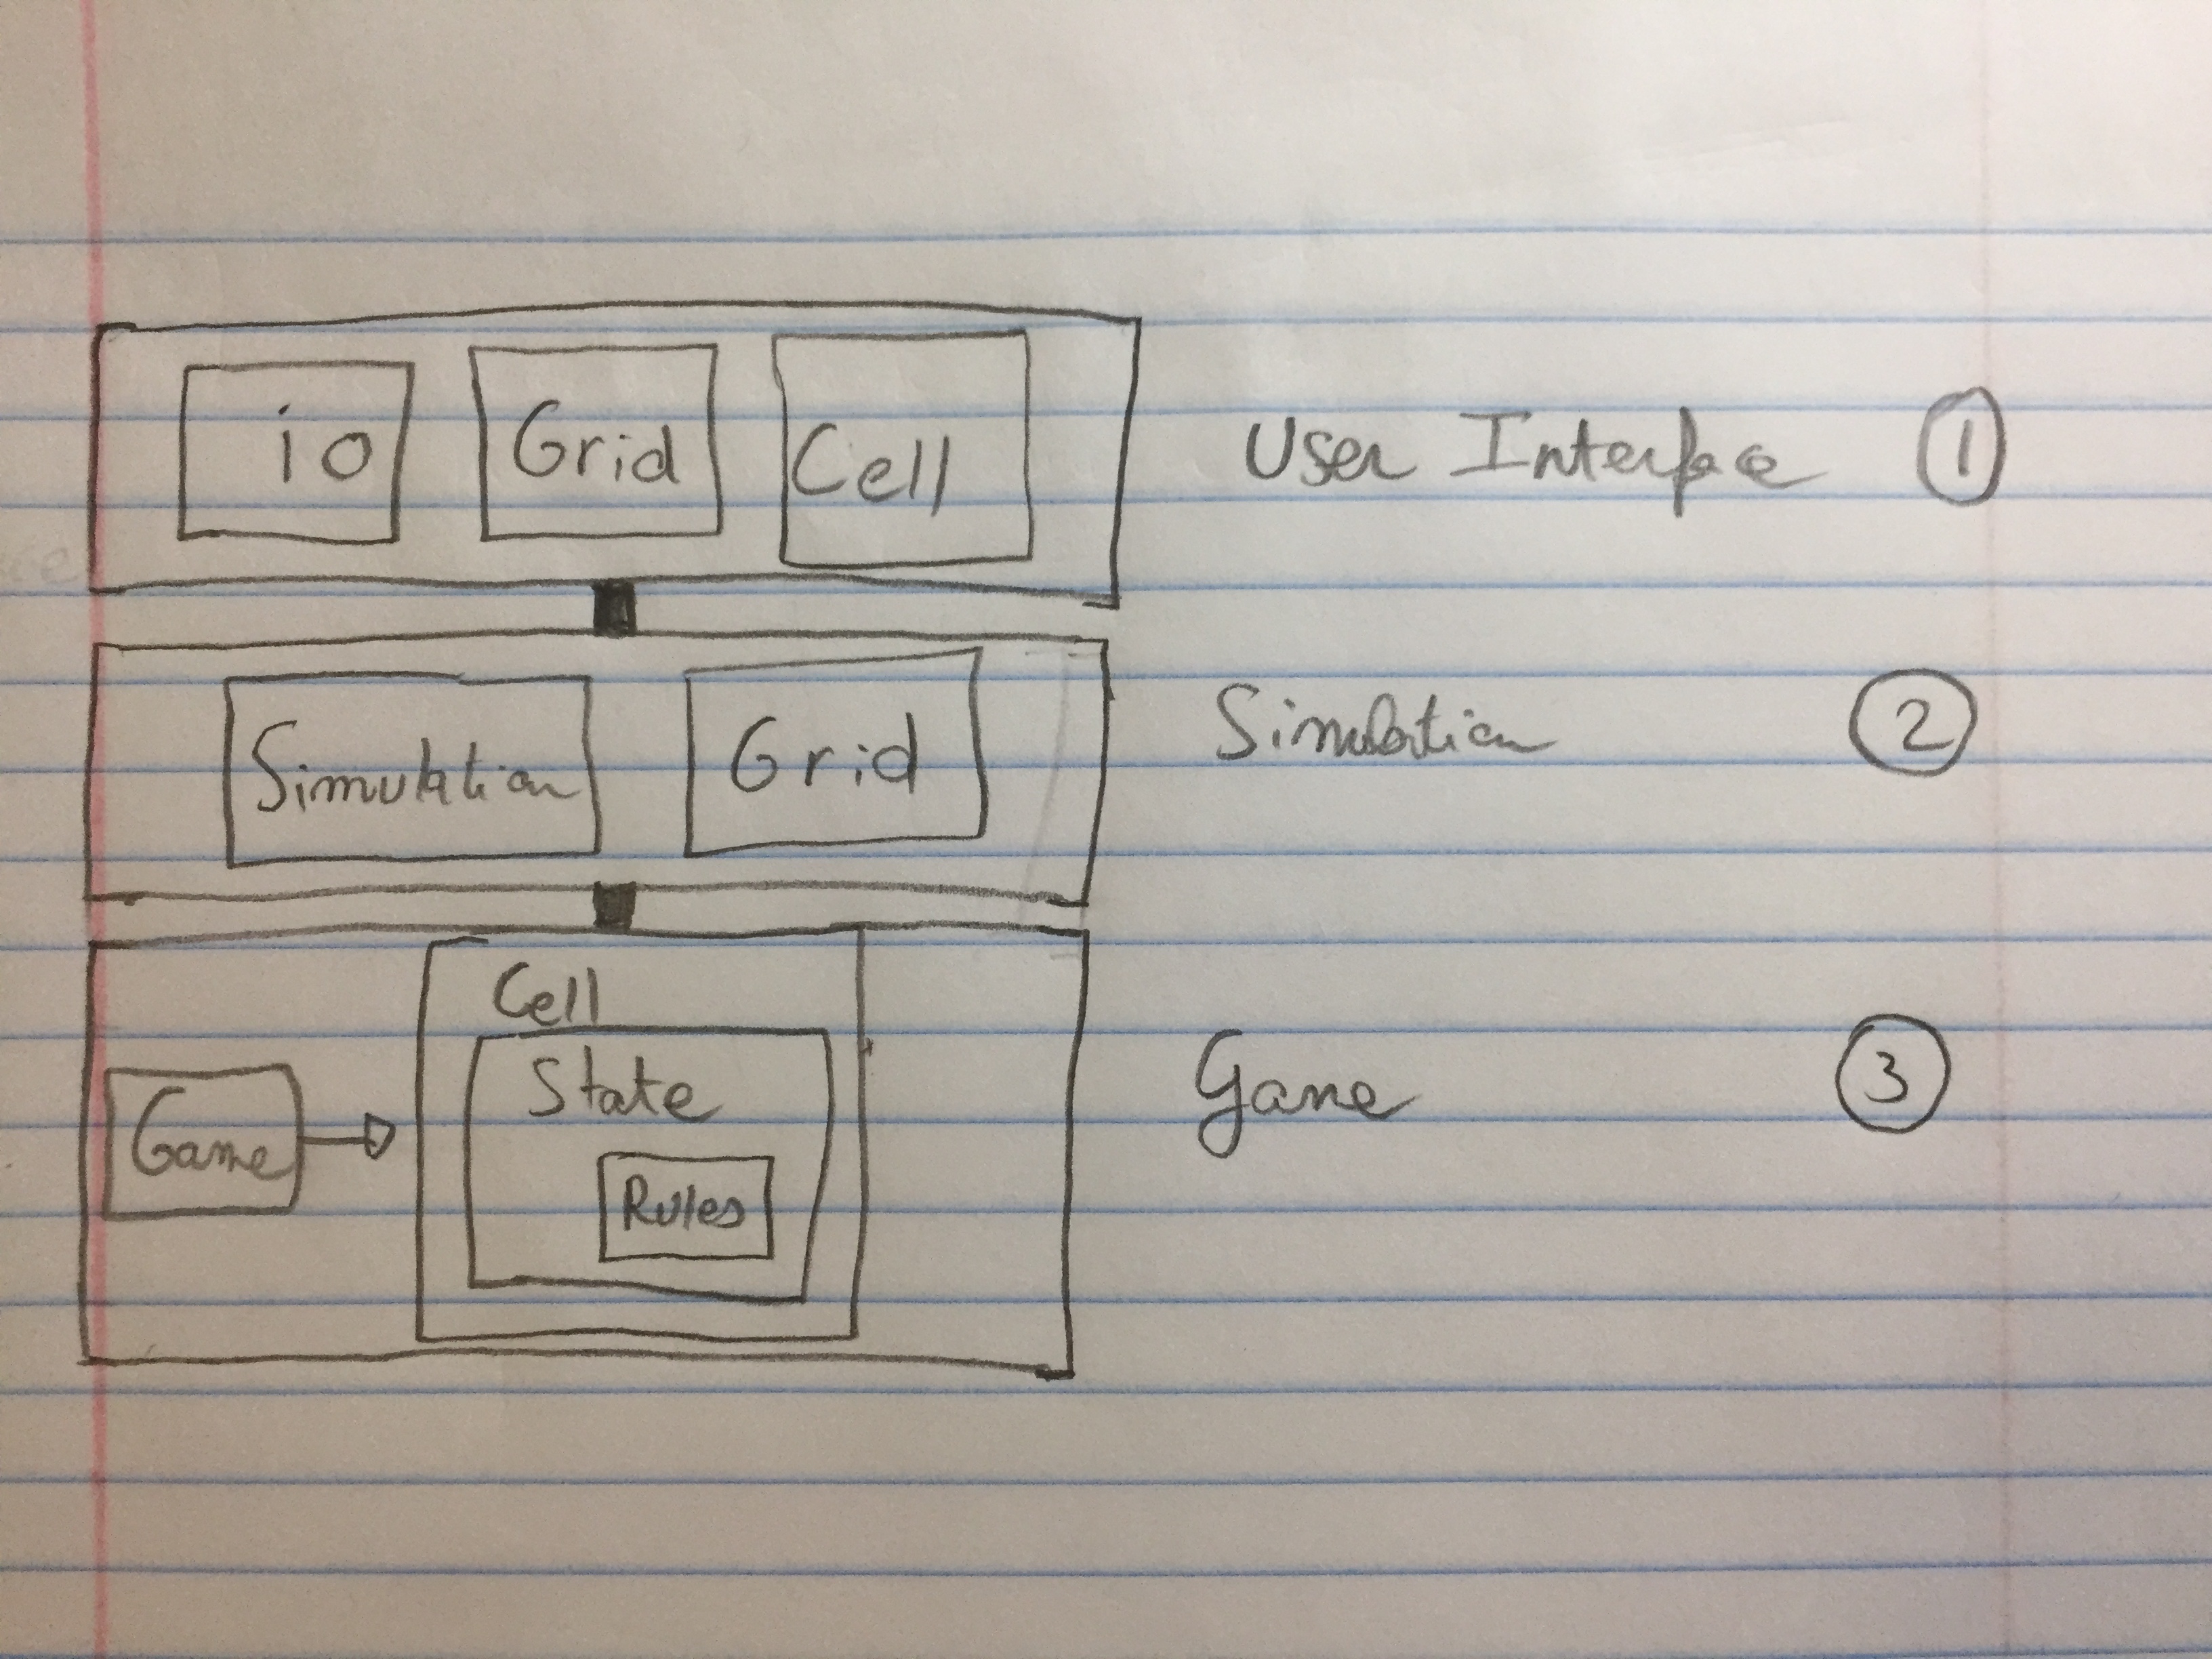 io Grid Cell User Interface 1
Simulation Grid Simulation 2
Cell
State
Game Game 3
Rules